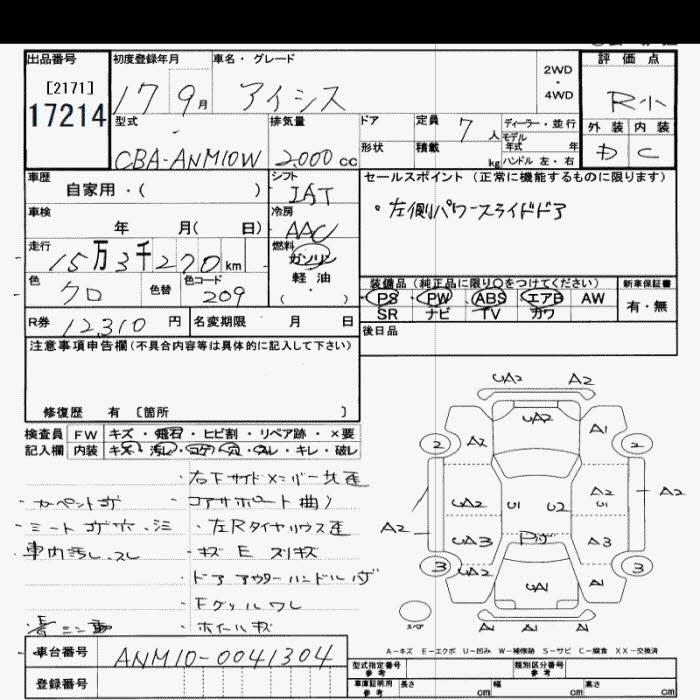 出品番号 初度登録年月 車名・グレード 2WD・4WD 評価点
[2171]
17214
17 9月 アイシス R小
型式 排気量 ドア 定員 7人 ディーラー・並行
モデル年式 年
形状 積載 kg ハンドル 左・右
外装 内装
D C
CBA-ANM10W 2,000 cc
車歴 シフト セールスポイント (正常に機能するものに限ります)
自家用・( ) IAT
・左側パワースライドドア
車検 冷房
年 月( 日) AAC
走行 燃料
15万3千270km ガソリン
軽油
( )
色 色替 色コード
クロ 209
装備品 (純正品に限り○をつけてください) 新車保証書
PS PW ABS エアB AW 有・無
SR ナビ TV カワ
R券 12,310円 名変期限 月 日 後日品
注意事項申告欄(不具合内容等は具体的に記入して下さい)
修復歴 有 〔箇所 〕
検査員 FW キズ・飛石・ヒビ割・リペア跡・×要
記入欄 内装 キズ・汚レ・コゲ・穴・スレ・キレ・破レ
・右Fサイドメンバー
・コアサポート曲り
・シートコゲ穴
・左Rタイヤハウス
車内汚レ、スレ
・キズ E スリキズ
・ドアアウターハンドル
・Fグリルワレ
・ホイールキズ
UA2 A2
UA2
2 A2 A1 2
UA2 U1 U2 A2
U1
A2
A2
UA3 A3
3 UA2 A1 3
UA1
スペア
A1 A1 A1
A-キズ E-エクボ U-凹み W-補修跡 S-サビ C-腐食 XX-交換済
車台番号 ANM10-0041304
登録番号
型式指定番号 参考 類別区分番号 参考
車庫証明用 参考 長さ cm 幅 cm 高さ cm